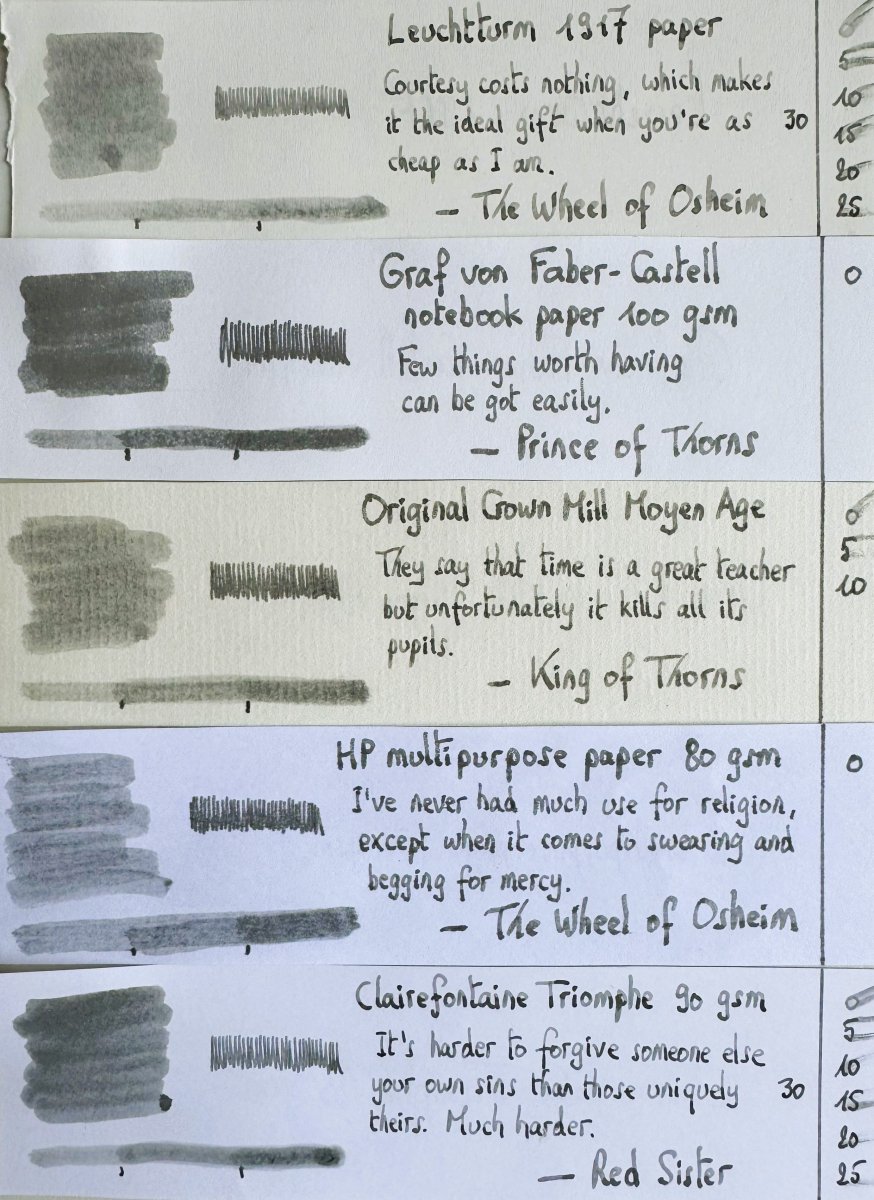 Leuchtturm 1917 paper
Courtesy costs nothing, which makes
it the ideal gift when you're as
cheap as I am.
— The Wheel of Osheim
0
5
10
15
20
25
30
Graf von Faber-Castell
notebook paper 100 gsm
Few things worth having
can be got easily.
— Prince of Thorns
0
Original Crown Mill Moyen Age
They say that time is a great teacher
but unfortunately it kills all its
pupils.
— King of Thorns
0
5
10
HP multipurpose paper 80 gsm
I've never had much use for religion,
except when it comes to swearing and
begging for mercy.
— The Wheel of Osheim
0
Clairefontaine Triomphe 90 gsm
It's harder to forgive someone else
your own sins than those uniquely
theirs. Much harder.
— Red Sister
0
5
10
15
20
25
30